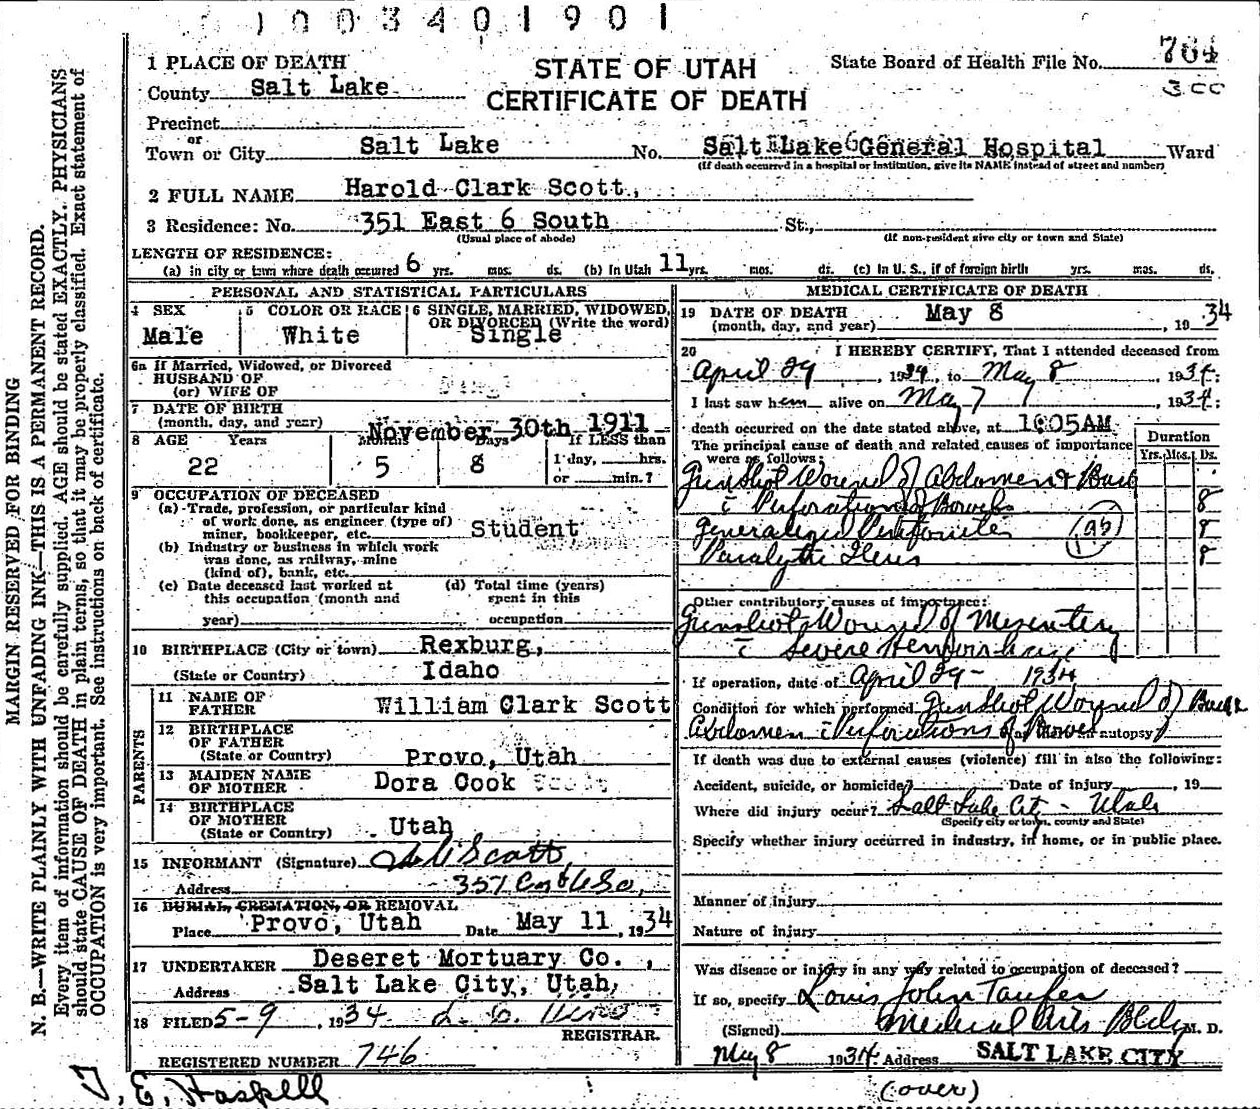 1003401901
1 PLACE OF DEATH
STATE OF UTAH
CERTIFICATE OF DEATH
State Board of Health File No. 764
3 cc
County Salt Lake
Precinct
or
Town or City Salt Lake No. Salt Lake General Hospital Ward
(If death occurred in a hospital or institution, give its NAME instead of street and number)
2 FULL NAME Harold Clark Scott,
3 Residence: No. 351 East 6 South St.,
(Usual place of abode) (If non-resident give city or town and State)
LENGTH OF RESIDENCE:
(a) in city or town where death occurred 6 yrs. mos. ds. (b) In Utah 11 yrs. mos. ds. (c) In U. S., if of foreign birth yrs. mos. ds.
PERSONAL AND STATISTICAL PARTICULARS
4 SEX Male
5 COLOR OR RACE White
6 SINGLE, MARRIED, WIDOWED, OR DIVORCED (Write the word) Single
6a If Married, Widowed, or Divorced
HUSBAND OF
(or) WIFE OF
7 DATE OF BIRTH
(month, day, and year) November 30th 1911
8 AGE Years Months Days If LESS than
22 5 8 1 day, hrs.
or min.?
9 OCCUPATION OF DECEASED
(a) Trade, profession, or particular kind
of work done, as engineer (type of)
miner, bookkeeper, etc. Student
(b) Industry or business in which work
was done, as railway, mine
(kind of), bank, etc.
(c) Date deceased last worked at
this occupation (month and
year)
(d) Total time (years)
spent in this
occupation
10 BIRTHPLACE (City or town) Rexburg,
(State or Country) Idaho
PARENTS
11 NAME OF
FATHER William Clark Scott
12 BIRTHPLACE
OF FATHER
(State or Country) Provo, Utah
13 MAIDEN NAME
OF MOTHER Dora Cook
14 BIRTHPLACE
OF MOTHER
(State or Country) Utah
15 INFORMANT (Signature) Scott,
Address 351 East 6 So,
16 BURIAL, CREMATION, OR REMOVAL
Place Provo, Utah Date May 11, 1934
17 UNDERTAKER Deseret Mortuary Co.,
Address Salt Lake City, Utah,
18 FILED 5-9, 1934
REGISTRAR.
REGISTERED NUMBER 746
T. E. Haskell
MEDICAL CERTIFICATE OF DEATH
19 DATE OF DEATH
(month, day, and year) May 8, 1934
20 I HEREBY CERTIFY, That I attended deceased from
April 29, 1934, to May 8, 1934;
I last saw him alive on May 7, 1934;
death occurred on the date stated above, at 10:05AM
The principal cause of death and related causes of importance
were as follows:
Duration
Yrs. Mos. Ds.
Gunshot Wound of Abdomen & Back
c Perforation of Bowels 8
Generalized Peritonitis 8
Paralytic Ileus 8
Other contributory causes of importance:
Gunshot Wound of Mesentery
c Severe Hemorrhage
If operation, date of April 29 - 1934
Condition for which performed Gunshot Wound of Back
Abdomen c Perforations of Bowel autopsy?
If death was due to external causes (violence) fill in also the following:
Accident, suicide, or homicide? Date of injury, 19
Where did injury occur? Salt Lake City - Utah
(Specify city or town, county and State)
Specify whether injury occurred in industry, in home, or in public place.
Manner of injury
Nature of injury
Was disease or injury in any way related to occupation of deceased?
If so, specify Louis John Taufer
(Signed) Medical Arts Bldg M. D.
May 8 1934 Address SALT LAKE CITY
(over)
MARGIN RESERVED FOR BINDING
N. B.—WRITE PLAINLY WITH UNFADING INK—THIS IS A PERMANENT RECORD.
Every item of information should be carefully supplied. AGE should be stated EXACTLY. PHYSICIANS
should state CAUSE OF DEATH in plain terms, so that it may be properly classified. Exact statement of
OCCUPATION is very important. See instructions on back of certificate.